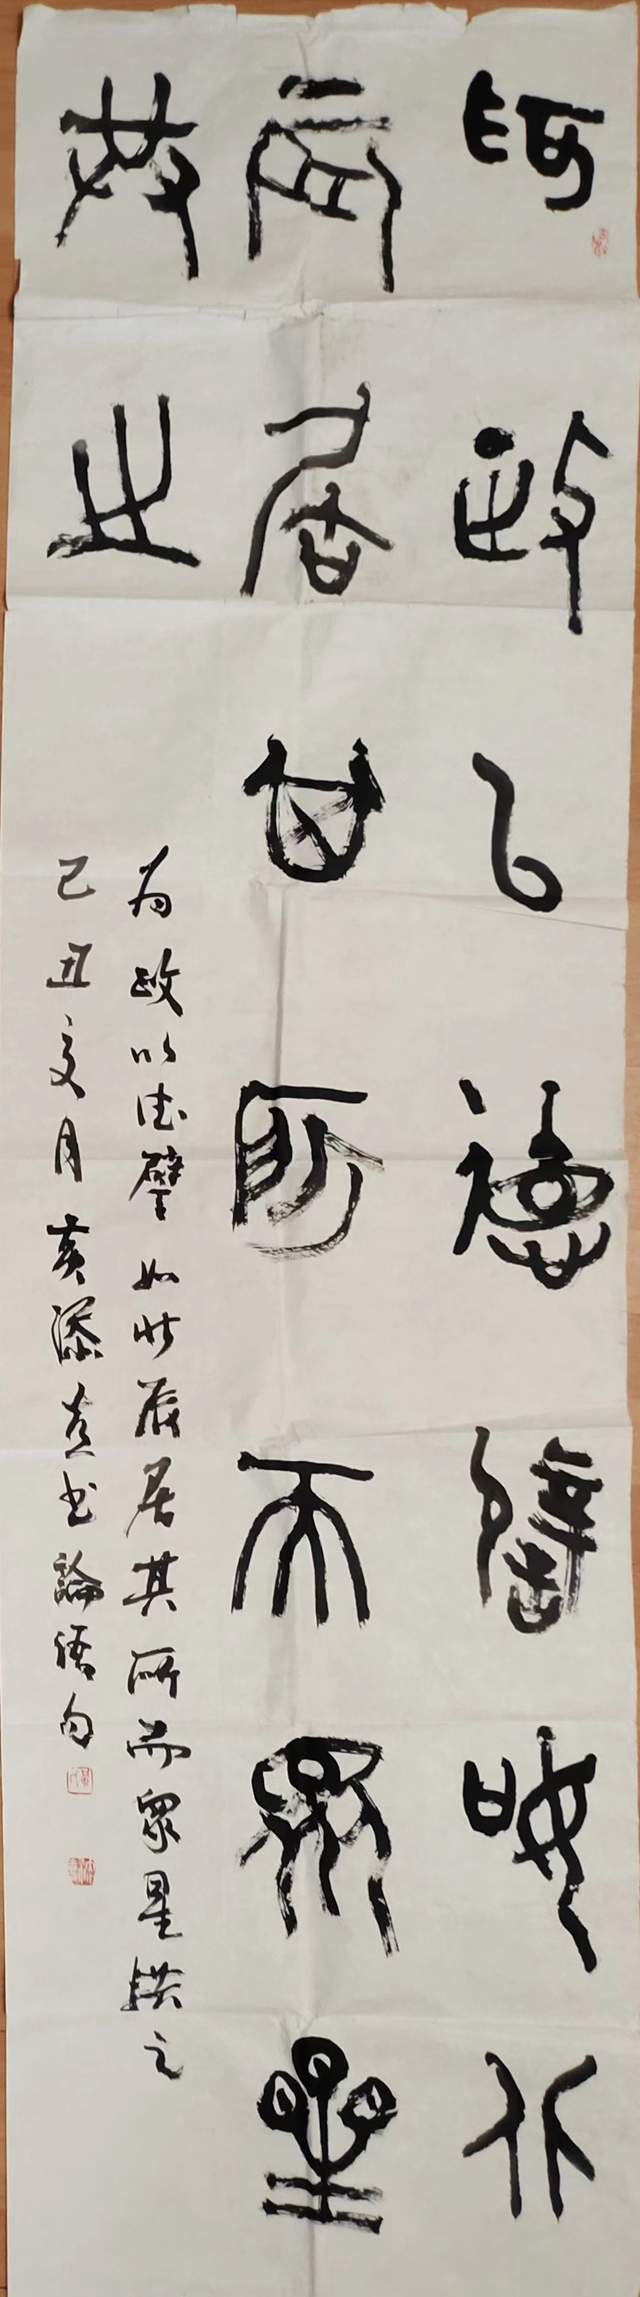 為政以德譬如北
辰居其所而眾星
共之
为政以德譬如北辰居其所而眾星拱之
己丑文月黄添书論語句